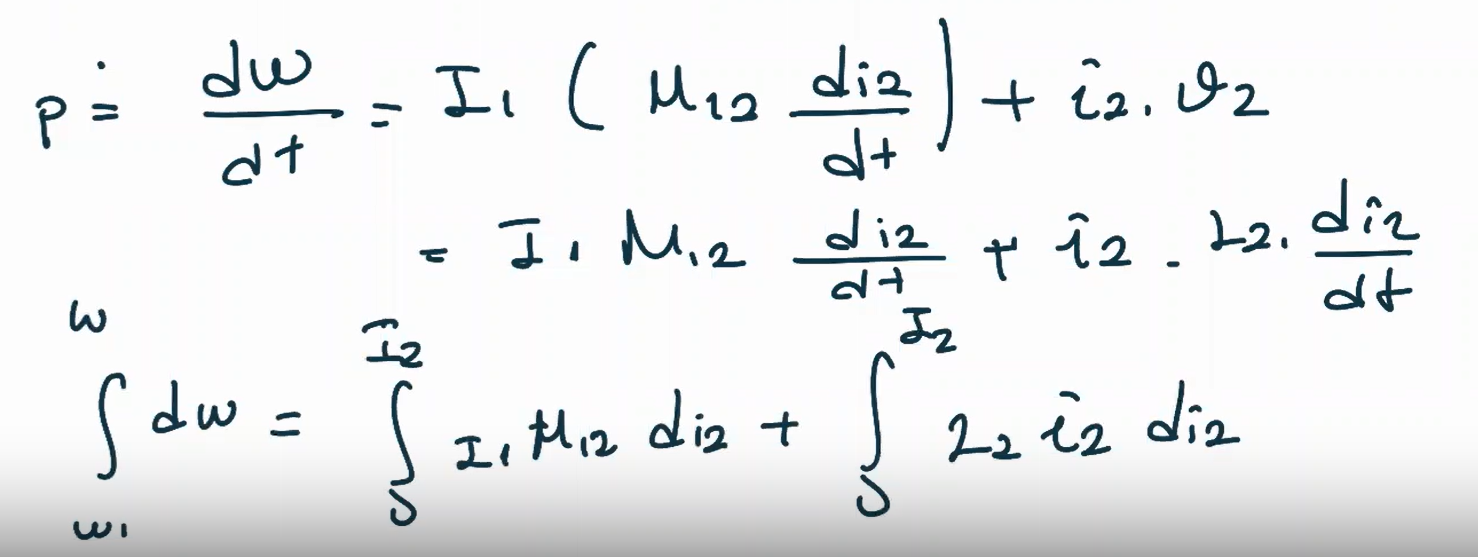 p = dw/dt = I1 ( M12 di2/dt ) + i2 . v2
= I1 M12 di2/dt + i2 . L2 . di2/dt
∫_{w1}^{w} dw = ∫_{0}^{I2} I1 M12 di2 + ∫_{0}^{I2} L2 i2 di2